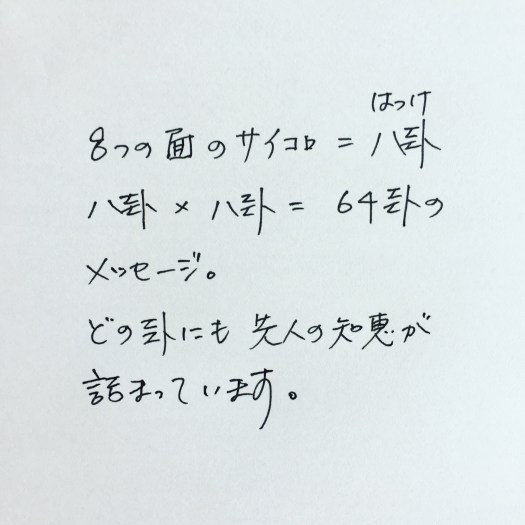 はっけ
8つの面のサイコロ = 八卦
八卦 × 八卦 = 64卦の
メッセージ。
どの卦にも先人の知恵が
詰まっています。